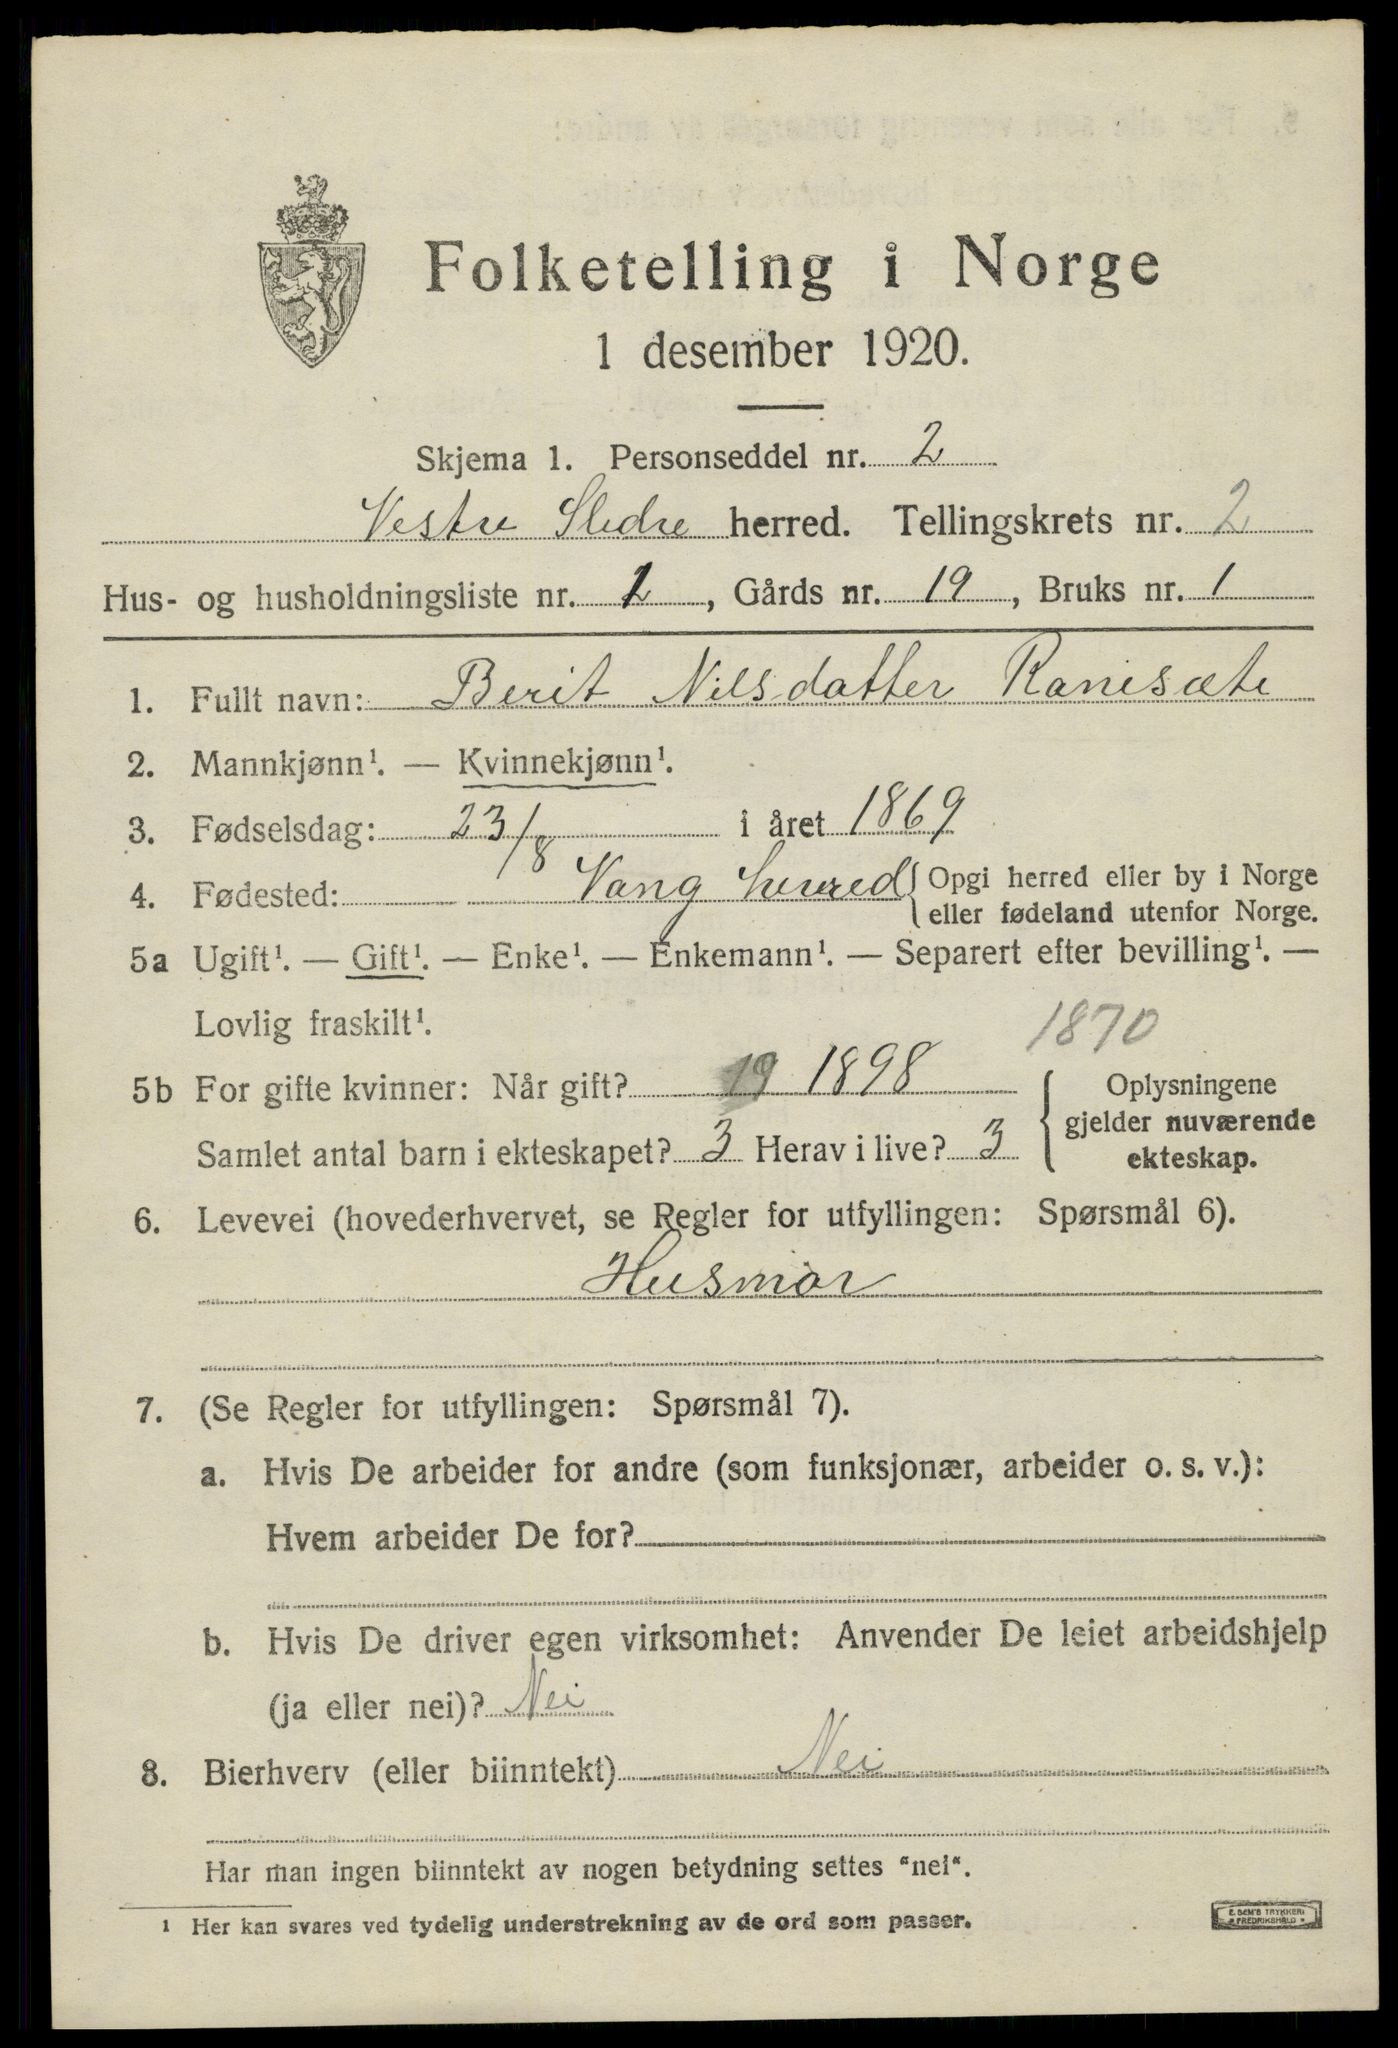 Folketelling i Norge
1 desember 1920.
Skjema 1. Personseddel nr. 2
Vestre Slidre herred. Tellingskrets nr. 2
Hus- og husholdningsliste nr. 1, Gårds nr. 19, Bruks nr. 1
1. Fullt navn: Berit Nilsdatter Ranisæte
2. Mannkjønn¹. — Kvinnekjønn¹.
3. Fødselsdag: 23/8 i året 1869
4. Fødested: Vang herred { Opgi herred eller by i Norge
eller fødeland utenfor Norge.
5a Ugift¹. — Gift¹. — Enke¹. — Enkemann¹. — Separert efter bevilling¹. —
Lovlig fraskilt¹.
1870
5b For gifte kvinner: Når gift? 19 1898 { Oplysningene
gjelder nuværende
Samlet antal barn i ekteskapet? 3 Herav i live? 3
ekteskap.
6. Levevei (hovederhvervet, se Regler for utfyllingen: Spørsmål 6).
Husmor
7. (Se Regler for utfyllingen: Spørsmål 7).
a. Hvis De arbeider for andre (som funksjonær, arbeider o. s. v.):
Hvem arbeider De for?
b. Hvis De driver egen virksomhet: Anvender De leiet arbeidshjelp
(ja eller nei)? Nei
8. Bierhverv (eller biinntekt) Nei
Har man ingen biinntekt av nogen betydning settes "nei".
1 Her kan svares ved tydelig understrekning av de ord som passer.
E. SEM'S TRYKKERI
FREDRIKSHALD